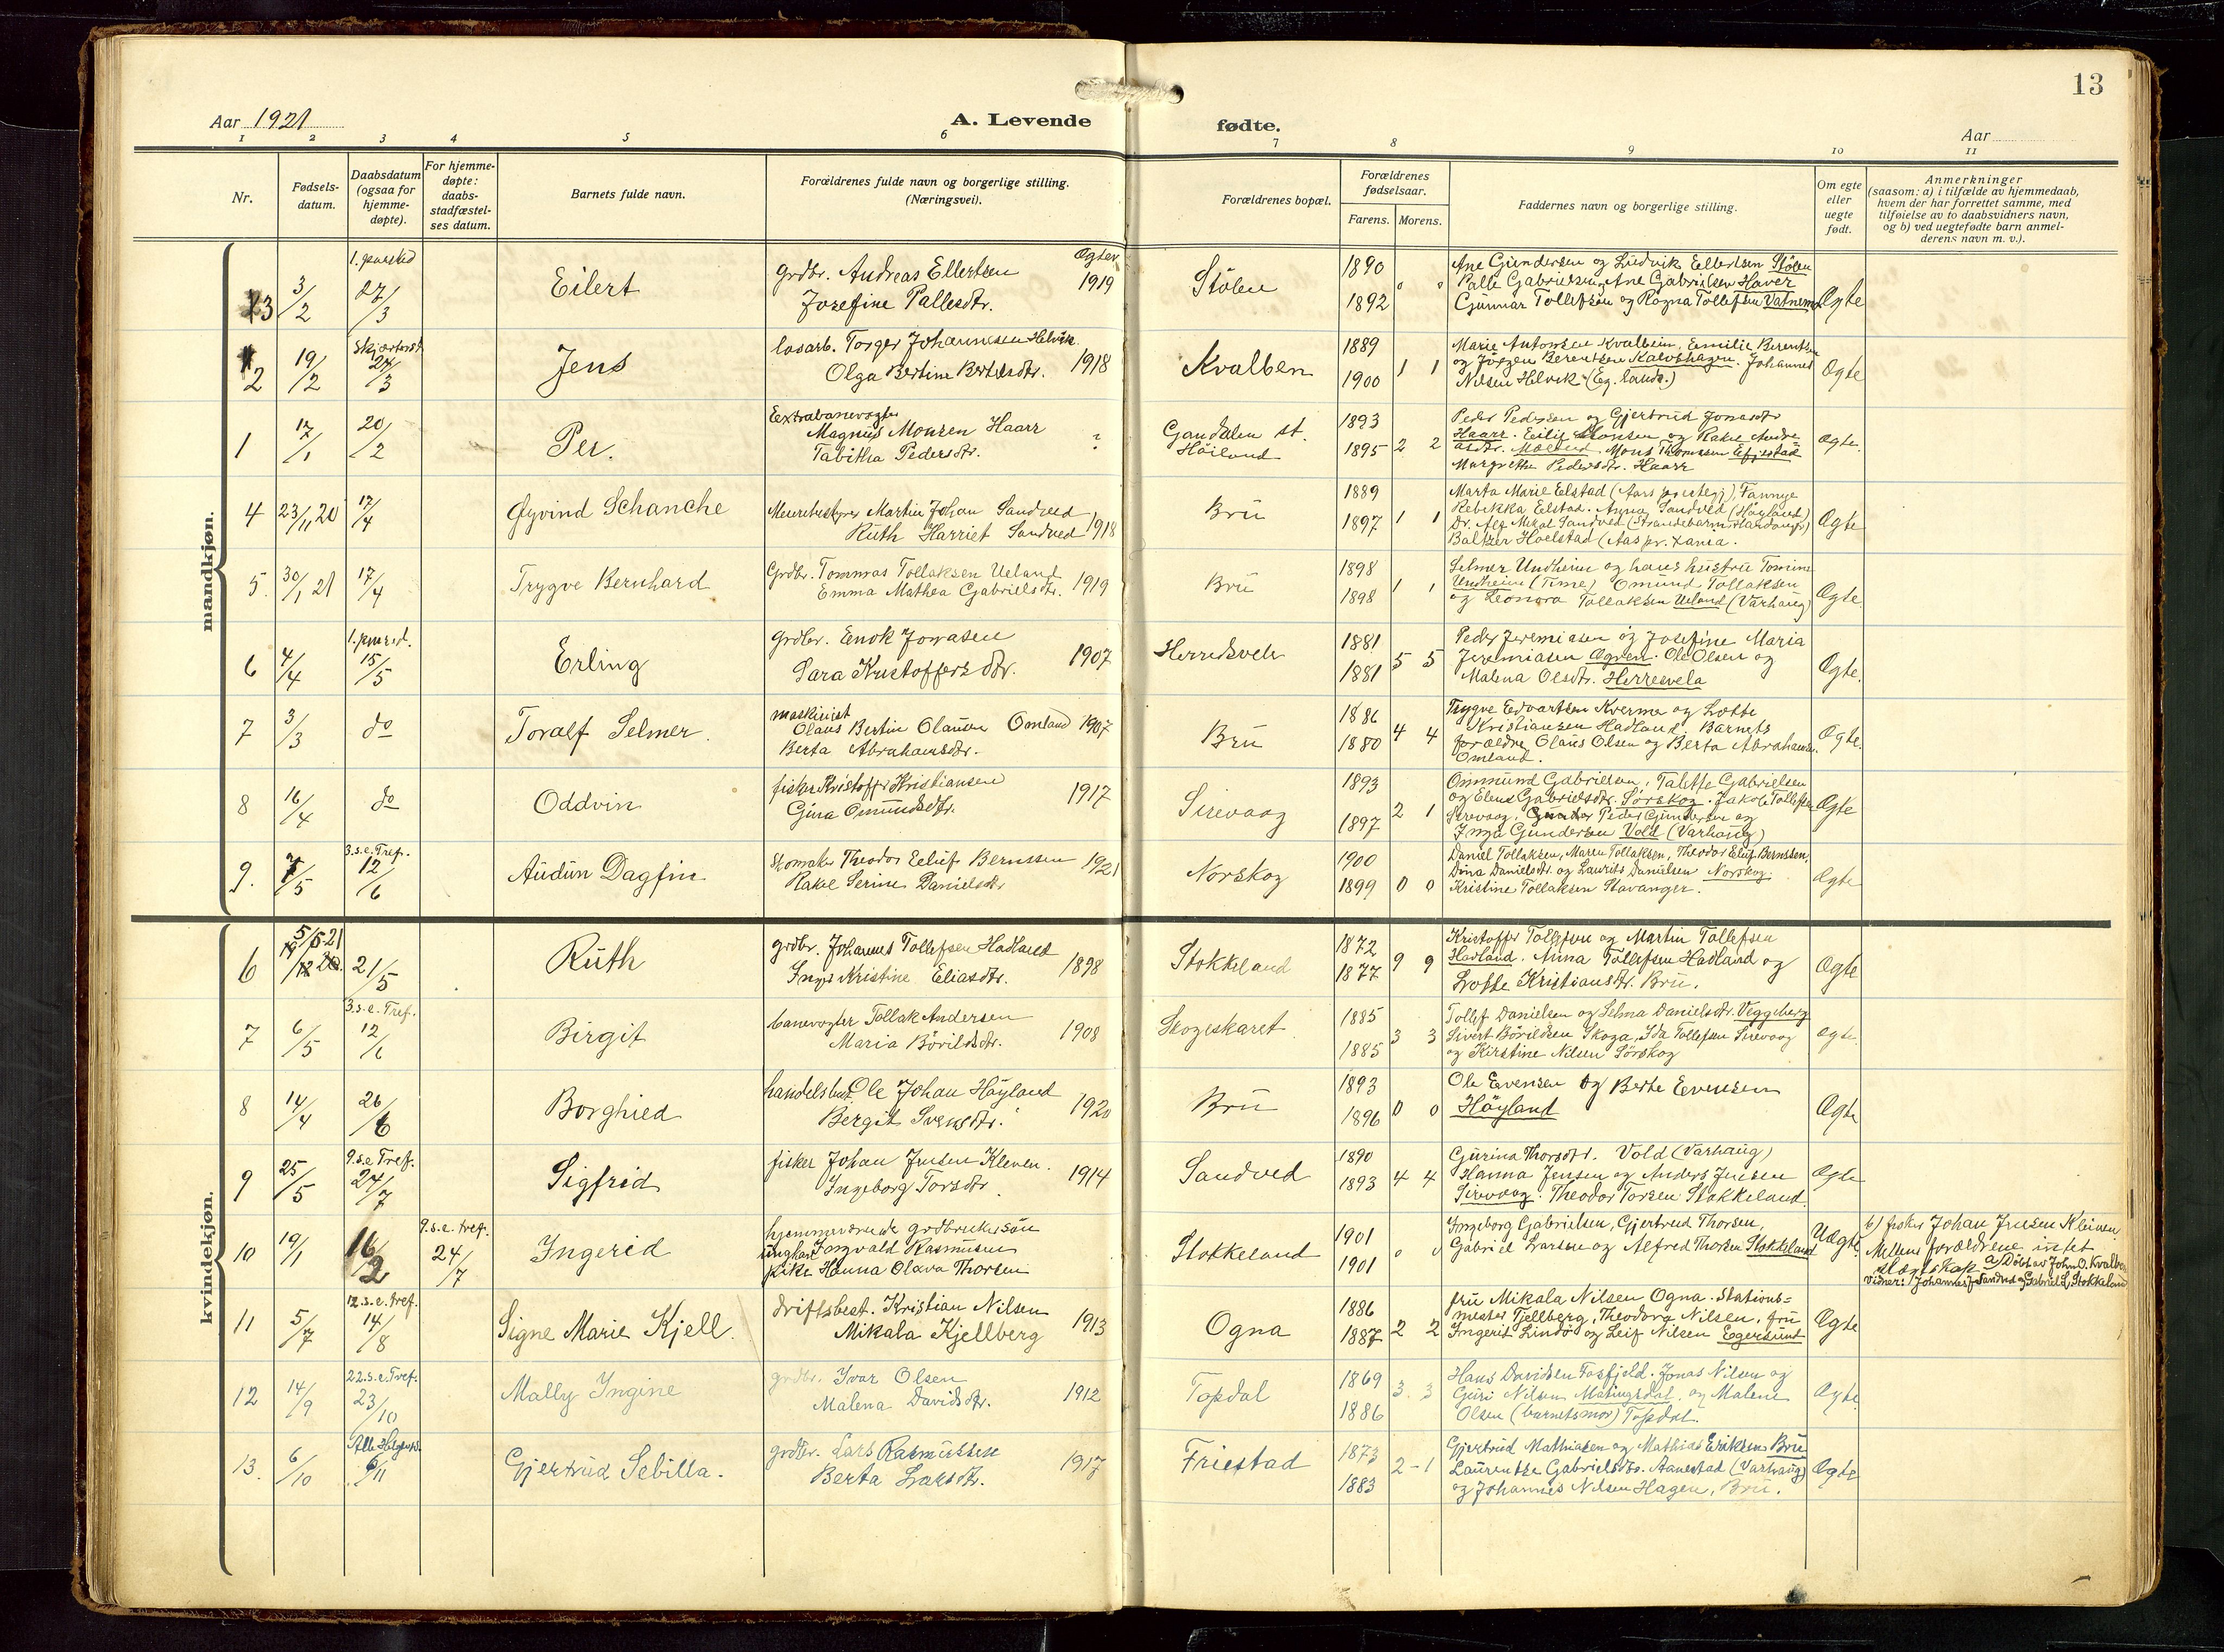 13
Aar 1921
A. Levende
fødte.
Aar
1 2 3 4 5 6 7 8 9 10 11
Nr.
Fødsels-
datum.
Daabsdatum
(ogsaa for
hjemme-
døpte).
For hjemme-
døpte:
daabs-
stadfæstel-
ses datum.
Barnets fulde navn.
Forældrenes fulde navn og borgerlige stilling.
(Næringsvei).
Forældrenes bopæl.
Forældrenes
fødselsaar.
Farens. Morens.
Faddernes navn og borgerlige stilling.
Om egte
eller
uegte
født.
Anmerkninger
(saasom: a) i tilfælde av hjemmedaab,
hvem der har forrettet samme, med
tilføielse av to daabsvidners navn,
og b) ved uegtefødte barn anmel-
derens navn m. v.).
mandkjøn.
3 3/2 27/3 Eilert
grdbr. Andreas Ellertsen 1919
Josefine Pallesdtr.
Stölen 1890 1892
Ane Gundersen og Ludvik Ellertsen Stölen
Palle Gabrielsen, Ane Gabrielsen Haver
Gunnar Tollefsen og Ragna Tollefsen Vatnemo
Ægte
2 19/2 Skjærtorsd. 24/3 Jens
løsarb. Torger Johannessen Helvik 1918
Olga Bertine Bertelsdtr.
Kvalben 1889 1900 1 1
Marie Antonsen Kvalbein, Emilie Berentsen
og Jörgen Berentsen Kalvshagen. Johannes
Nilsen Helvik (Eg. lands.)
Ægte
1 17/1 20/2 Per.
Extrabanevogter
Magnus Monsen Haarr ?
Tabitha Pedersdtr.
Gandalen st.
Höiland 1893 1895 2 2
Peder Pedersen og Gjertrud Jonasdtr
Haarr. Eilif Monsen og Rakel Andre-
asdtr. Mons Thomssen
Margrethe Pedersdtr. Haarr
Ægte.
4 23/11 20 17/4 Øyvind Schanche
Meieribestyrer Martin Johan Sandved
Ruth Harriet Sandved 1918
Brü 1889 1897 1 1
Marta Marie Elstad (Aars prestegj), Fannye
Rebekka Elstad. Anna Sandved (Høyland)
Dr. Alf Mikal Sandved (Strandebarm Hardanger)
Baltzer Hoelstad (Aas pr.
Ægte
5. 30/1 21 17/4 Trygve Bernhard
Grdbr. Tommas Tollaksen Ueland 1919
Emma Mathea Gabrielsdtr.
Brü 1898 1898 1 1
Selmer Undheim og hans hustru Tomine
Undheim (Time) Omund Tollaksen
og Leonora Tollaksen Ueland (Varhaug)
Ægte.
6 4/4 15/5 Erling
grdbr. Enok Jonasen 1907
Sara Kristoffersdtr.
Herredsvela 1881 1881 5 5
Peder Jeremiasen og Josefine Maria
Jeremiasen Ogven. Ole Olsen og
Malena Olsdtr. Herresvela
Ægte.
7 3/3 do Toralf Selmer.
maskinist
Olaus Bertin Olausen Omland 1907
Berta Abrahamsdtr.
Brü 1886 1880 4 4
Trygve Edvartsen Kverme og Lotte
Kristiansen Hadland. Barnets
forældre Olaus Olsen og Berta Abrahamsen
Omland.
Ægte.
8 16/4 do Oddvin
fisker Kristoffer Kristiansen 1917
Gina Omundsdtr.
Sirevaag 1893 1897 2 1
Ommund Gabrielsen, Talette Gabrielsen
og Elene Gabrielsdtr. Sørskog. Jakob Tollefsen
Sirevaag. Peder Gundersen og
Inga Gundersen Vold (Varhaug)
Ægte
9. 7/5 3.s.e.Tref. 12/6 Audun Dagfin
Skomaker Theodor Eeliuf Bernssen 1921
Rakel Serine Danielsdtr
Norskog 1900 1899 0 0
Daniel Tollaksen, Maren Tollaksen, Theodor Eliuf Bernssen,
Dina Danielsdtr. og Laurits Danielsen Norskog.
Kristine Tollaksen Stavanger.
Ægte
kvindekjøn.
6 5/5 21 21/5 Ruth
grdbr. Johannes Tollefsen Hadland 1898
Inger Kristine Eliasdtr.
Stokkeland 1872 1877 9 9
Kristoffer Tollefsen og Martin Tollefsen
Hadland. Anna Tollefsen Hadland og
Lotte Kristiansdtr. Brü.
Ægte
7 6/5 3.s.e.Tref. 12/6 Birgit
banevogter Tollak Andersen 1908
Maria Börildsdtr.
Skogeskaret 1885 1885 3 3
Tollef Danielsen og Selma Danielsdtr. Veggeberg
Sivert Börildsen Skoga, Ida Tollefsen Sirevaag
og Kirstine Nilsen Sørskog
Ægte.
8 14/4 26/6 Borghied
handelsbest. Ole Johan Höyland 1920
Bergit Svensdtr.
Brü 1893 1896 0 0
Ole Evensen og Berte Evensen
Höyland
Ægte
9 25/5 9.s.e Tref. 24/7 Sigfrid
fisker Johan Jensen Kleven. 1914
Ingeborg Torsdtr.
Sandved 1890 1893 4 4
Gurina Thorsdtr. Vold (Varhaug)
Hanna Jensen og Anders Jensen
Sirevaag. Theodor Torsen Stokkeland
Ægte
10 19/1 16/2 9.s.e. tref. 24/7 Ingerid
hjemmeværende grdbrukersøn
ungkar Torgvald Rasmusen
pike Hanna Olava Thorsen
Stokkeland 1901 1901 0 0
Ingeborg Gabrielsen, Gjertrud Thorsen,
Gabriel Larsen og Alfred Thorsen Stokkeland
Uægte
b) fisker Johan Jensen Kleiven
Mellem forældrene intet
slægtskap a) Døbt av John O. Kvalbein
vidner: Johannes J Sandved og Gabriel L. Stokkeland
11 5/7 12.s.e.tref. 14/8 Signe Marie Kjell.
driftsbest. Kristian Nilsen 1913
Mikala Kjellberg
Ogna 1886 1887 2 2
fru Mikala Nilsen Ogna. Stations=
mester Tjellberg, Theodora Nilsen, fru
Ingerit Lindö og Leif Nilsen Egersund
Ægte
12 14/9 22.s.e.Tref. 23/10 Mally Ingine
grdbr. Ivar Olsen 1912
Malena Davidsdtr.
Topdal 1869 1886 3. 3
Hans Davidsen Fosfjeld. Jonas Nilsen og
Guri Nilsen Matingsdal, og Malene
Olsen (barnets mor) Topdal.
Ægte.
13. 6/10 Alle Helgensd. 6/11 Gjertrud Sebilla.
grdbr. Lars Rasmussen 1917
Berta Larsdtr.
Friestad 1873 1883 2-1
Gjertrud Mathiasen og Mathias Eriksen Brü
Laurentze Gabrielsdtr. Aanestad (Varhaug)
og Johannes Nilsen Hagen, Brü.
Ægte